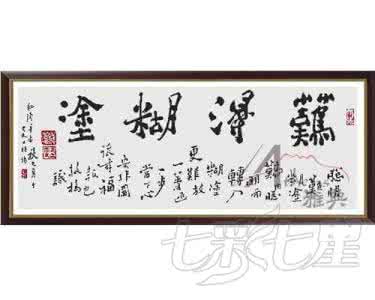 難得糊塗
聰明
難糊塗
難由聰
明而
轉入
糊塗
更難放
一著退
一步
當下心
安非圖
後來福
報也
板橋
識
雅典
七彩七星